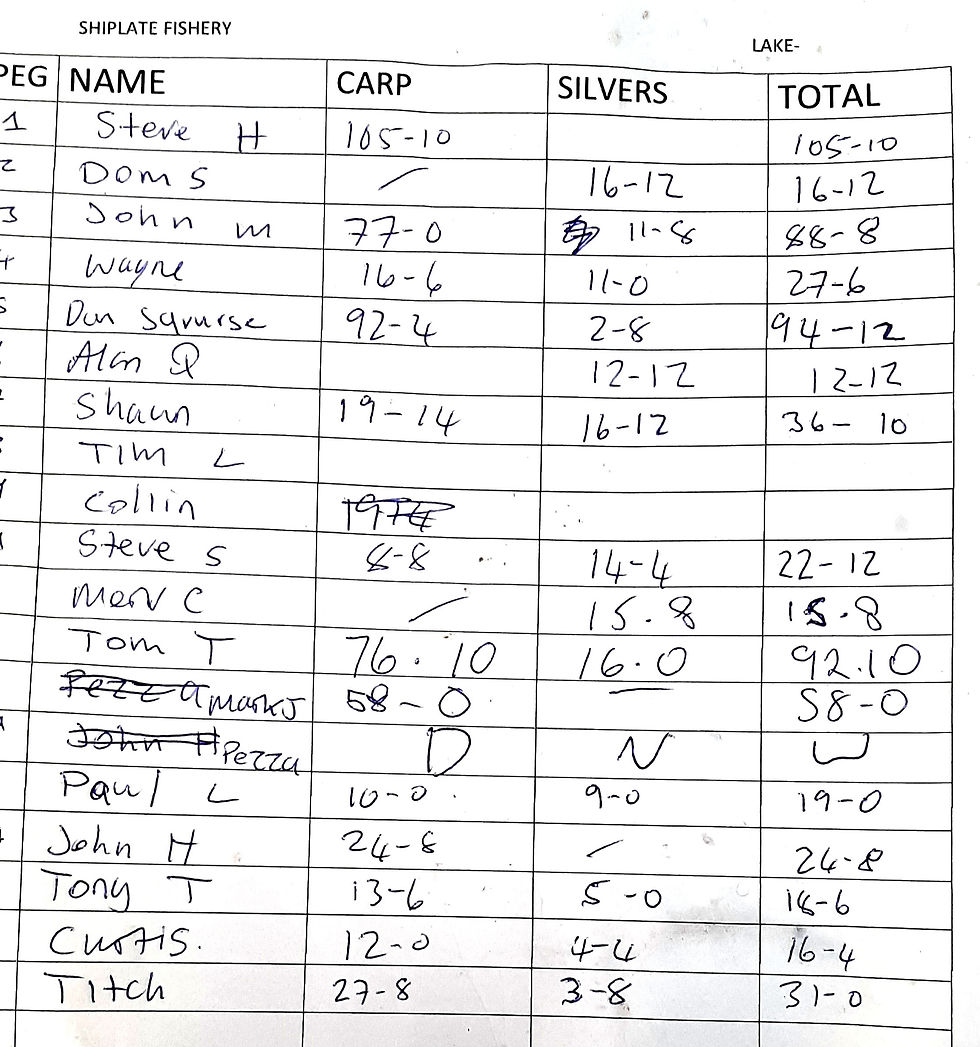 SHIPLATE FISHERY
LAKE-
PEG NAME CARP SILVERS TOTAL
1 Steve H 105-10 105-10
2 Dom S / 16-12 16-12
3 John M 77-0 11-8 88-8
4 Wayne 16-6 11-0 27-6
5 Dan Squurse 92-4 2-8 94-12
Alan Q 12-12 12-12
Shaun 19-14 16-12 36-10
Tim L
Collin
Steve S 8-8 14-4 22-12
Merv C / 15.8 15.8
Tom T 76.10 16.0 92.10
Pezza Mark J 58-0 — 58-0
John H Pezza D N W
Paul L 10-0 9-0 19-0
John H 24-8 / 24-8
Tony T 13-6 5-0 18-6
Curtis. 12-0 4-4 16-4
Titch 27-8 3-8 31-0